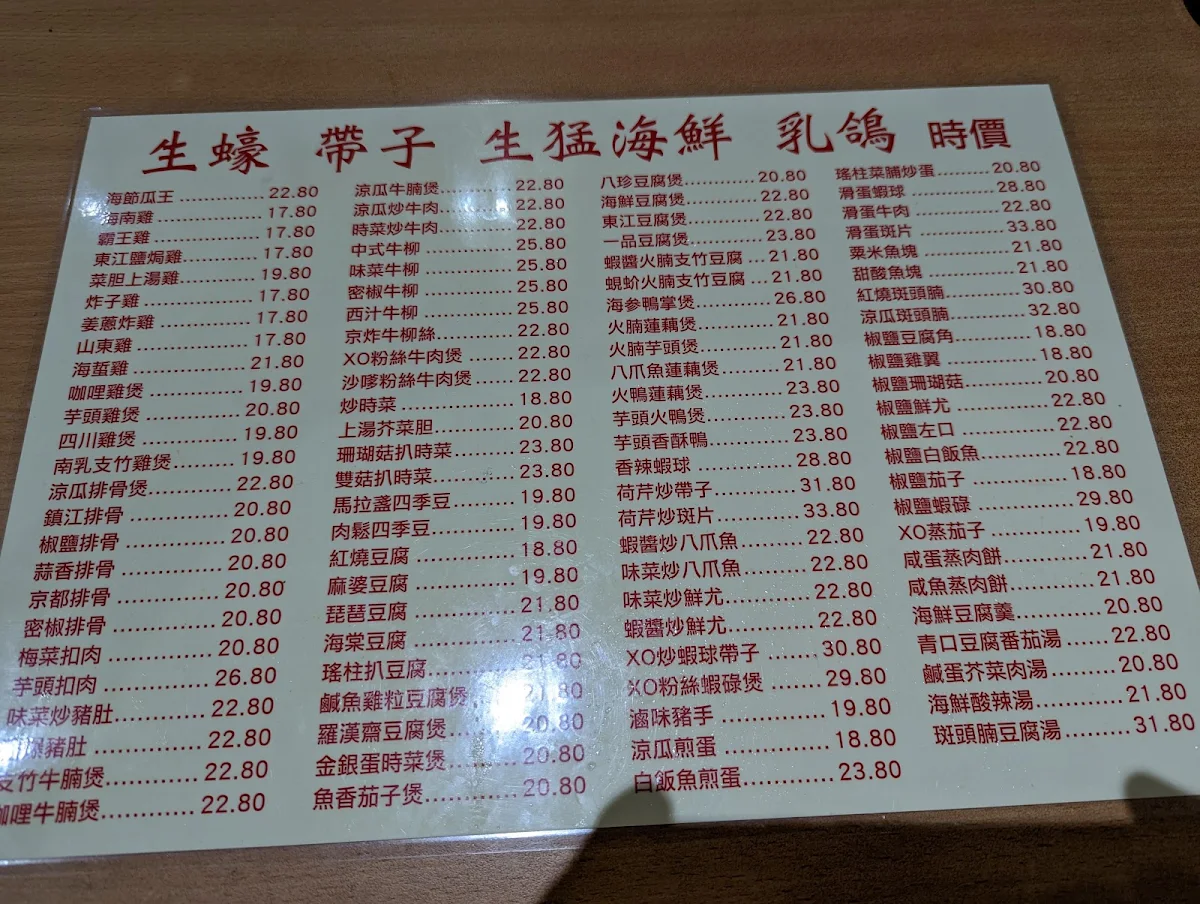 生蠔 帶子 生猛海鮮 乳鴿 時價
海節瓜王 22.80
海南雞 17.80
霸王雞 17.80
東江鹽焗雞 17.80
菜胆上湯雞 19.80
炸子雞 17.80
姜蔥炸雞 17.80
山東雞 17.80
海蜇雞 21.80
咖哩雞煲 19.80
芋頭雞煲 20.80
四川雞煲 19.80
南乳支竹雞煲 19.80
涼瓜排骨煲 22.80
鎮江排骨 20.80
椒鹽排骨 20.80
蒜香排骨 20.80
京都排骨 20.80
密椒排骨 20.80
梅菜扣肉 20.80
芋頭扣肉 26.80
味菜炒豬肚 22.80
爆豬肚 22.80
支竹牛腩煲 22.80
咖哩牛腩煲 22.80
涼瓜牛腩煲 22.80
涼瓜炒牛肉 22.80
時菜炒牛肉 22.80
中式牛柳 25.80
味菜牛柳 25.80
密椒牛柳 25.80
西汁牛柳 25.80
京炸牛柳絲 22.80
XO粉絲牛肉煲 22.80
沙嗲粉絲牛肉煲 22.80
炒時菜 18.80
上湯芥菜胆 20.80
珊瑚菇扒時菜 23.80
雙菇扒時菜 23.80
馬拉盞四季豆 19.80
肉鬆四季豆 19.80
紅燒豆腐 18.80
麻婆豆腐 19.80
琵琶豆腐 21.80
海棠豆腐 21.80
瑤柱扒豆腐 21.80
鹹魚雞粒豆腐煲 21.80
羅漢齋豆腐煲 20.80
金銀蛋時菜煲 20.80
魚香茄子煲 20.80
八珍豆腐煲 20.80
海鮮豆腐煲 22.80
東江豆腐煲 22.80
一品豆腐煲 23.80
蝦醬火腩支竹豆腐 21.80
蜆蚧火腩支竹豆腐 21.80
海參鴨掌煲 26.80
火腩蓮藕煲 21.80
火腩芋頭煲 21.80
八爪魚蓮藕煲 21.80
火鴨蓮藕煲 23.80
芋頭火鴨煲 23.80
芋頭香酥鴨 23.80
香辣蝦球 28.80
荷芹炒帶子 31.80
荷芹炒斑片 33.80
蝦醬炒八爪魚 22.80
味菜炒八爪魚 22.80
味菜炒鮮尤 22.80
蝦醬炒鮮尤 22.80
XO炒蝦球帶子 30.80
XO粉絲蝦碌煲 29.80
滷味豬手 19.80
涼瓜煎蛋 18.80
白飯魚煎蛋 23.80
瑤柱菜脯炒蛋 20.80
滑蛋蝦球 28.80
滑蛋牛肉 22.80
滑蛋斑片 33.80
粟米魚塊 21.80
甜酸魚塊 21.80
紅燒斑頭腩 30.80
涼瓜斑頭腩 32.80
椒鹽豆腐角 18.80
椒鹽雞翼 18.80
椒鹽珊瑚菇 20.80
椒鹽鮮尤 22.80
椒鹽左口 22.80
椒鹽白飯魚 22.80
椒鹽茄子 18.80
椒鹽蝦碌 29.80
XO蒸茄子 19.80
咸蛋蒸肉餅 21.80
咸魚蒸肉餅 21.80
海鮮豆腐羹 20.80
青口豆腐番茄湯 22.80
鹹蛋芥菜肉湯 20.80
海鮮酸辣湯 21.80
斑頭腩豆腐湯 31.80